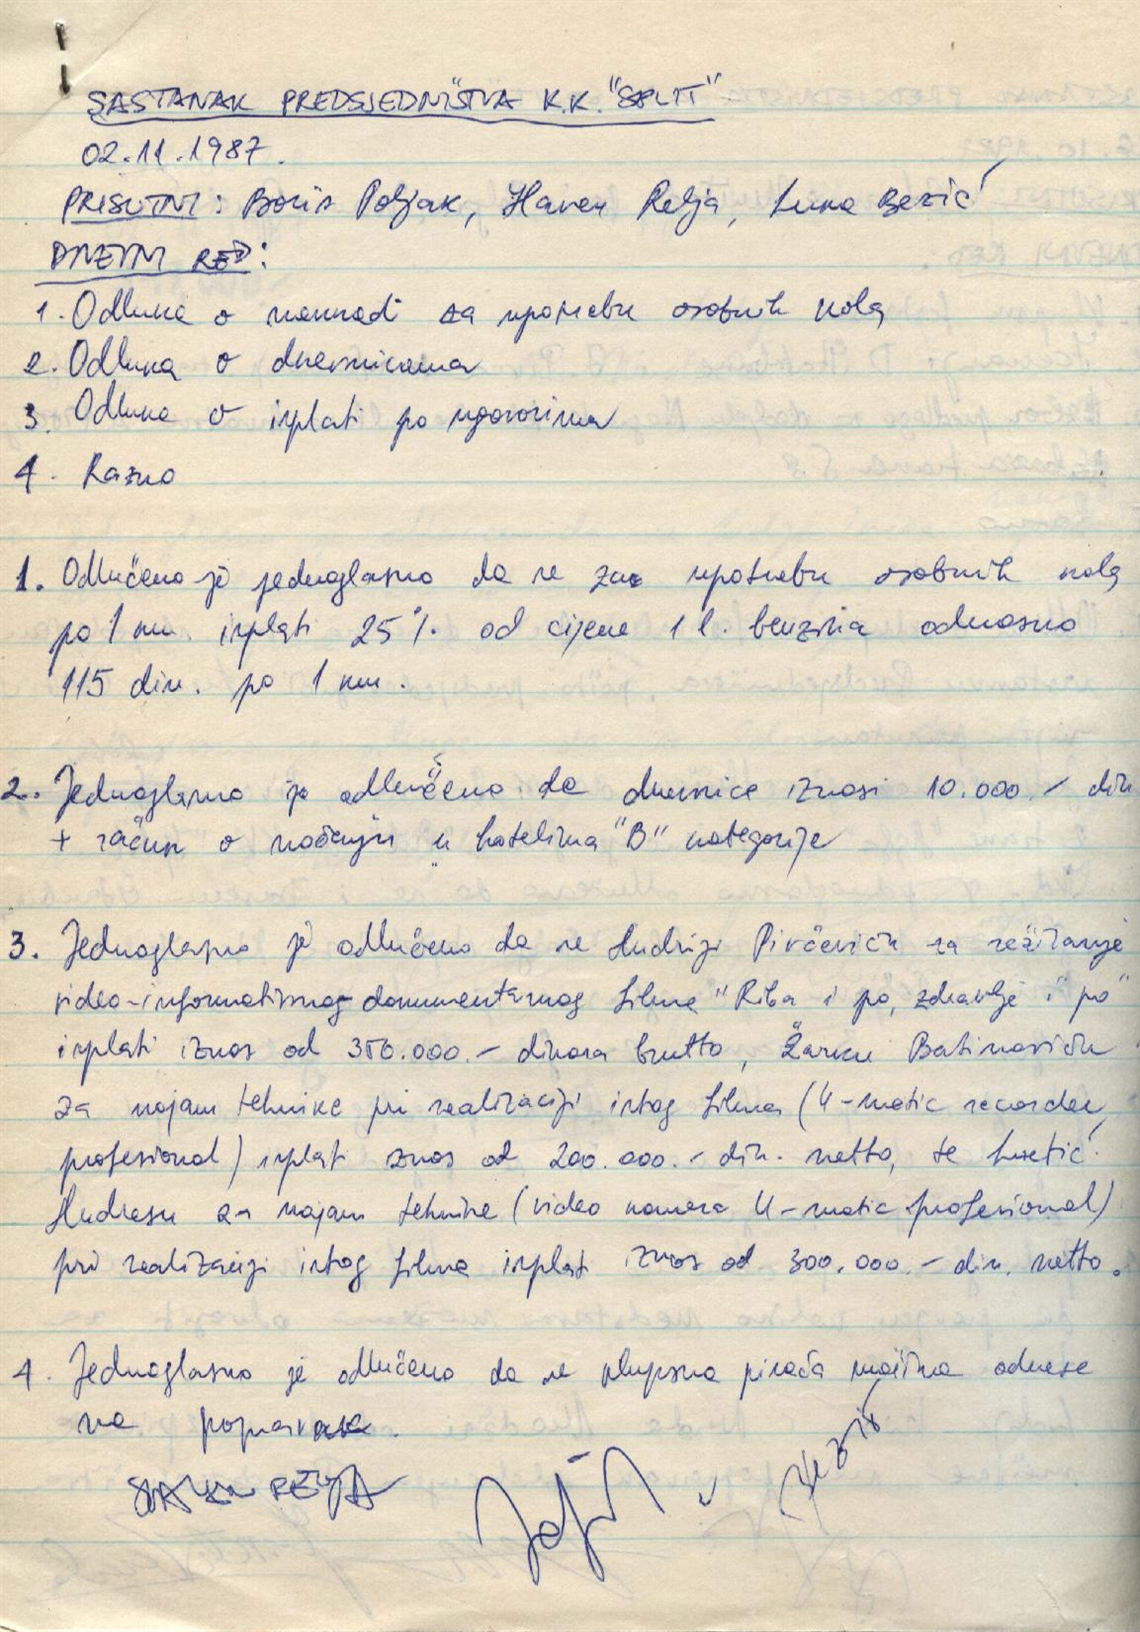 SASTANAK PREDSJEDNIŠTVA K.K. "SPLIT"
02.11.1987.
PRISUTNI: Boris Poljak, Slaven Relja, Luka Bezić
DNEVNI RED:
1. Odluka o naknadi za upotrebu osobnih kola
2. Odluka o dnevnicama
3. Odluka o isplati po ugovorima
4. Razno
1. Odlučeno je jednoglasno da se za upotrebu osobnih kola
po 1 km. isplati 25%. od cijene 1 l. benzina odnosno
115 din. po 1 km.
2. Jednoglasno je odlučeno da dnevnice iznosi 10.000.- din
+ račun o noćenju u hotelima "B" kategorije
3. Jednoglasno je odlučeno da se Andriji Pivčeviću za režiranje
video-informativnog dokumentarnog filma "Riba i po, zdravlje i po"
isplati iznos od 350.000.- dinara brutto, Žarku Batinoviću
za najam tehnike pri realizaciji istog filma (U-matic recorder
profesional) isplati iznos od 200.000.- din. netto, te
Andresu za najam tehnike (video kamera U-matic profesional)
pri realizaciji istog filma isplati iznos od 300.000.- din. netto.
4. Jednoglasno je odlučeno da se pisaća mašina odnese
na popravak.
SLAVEN RELJA